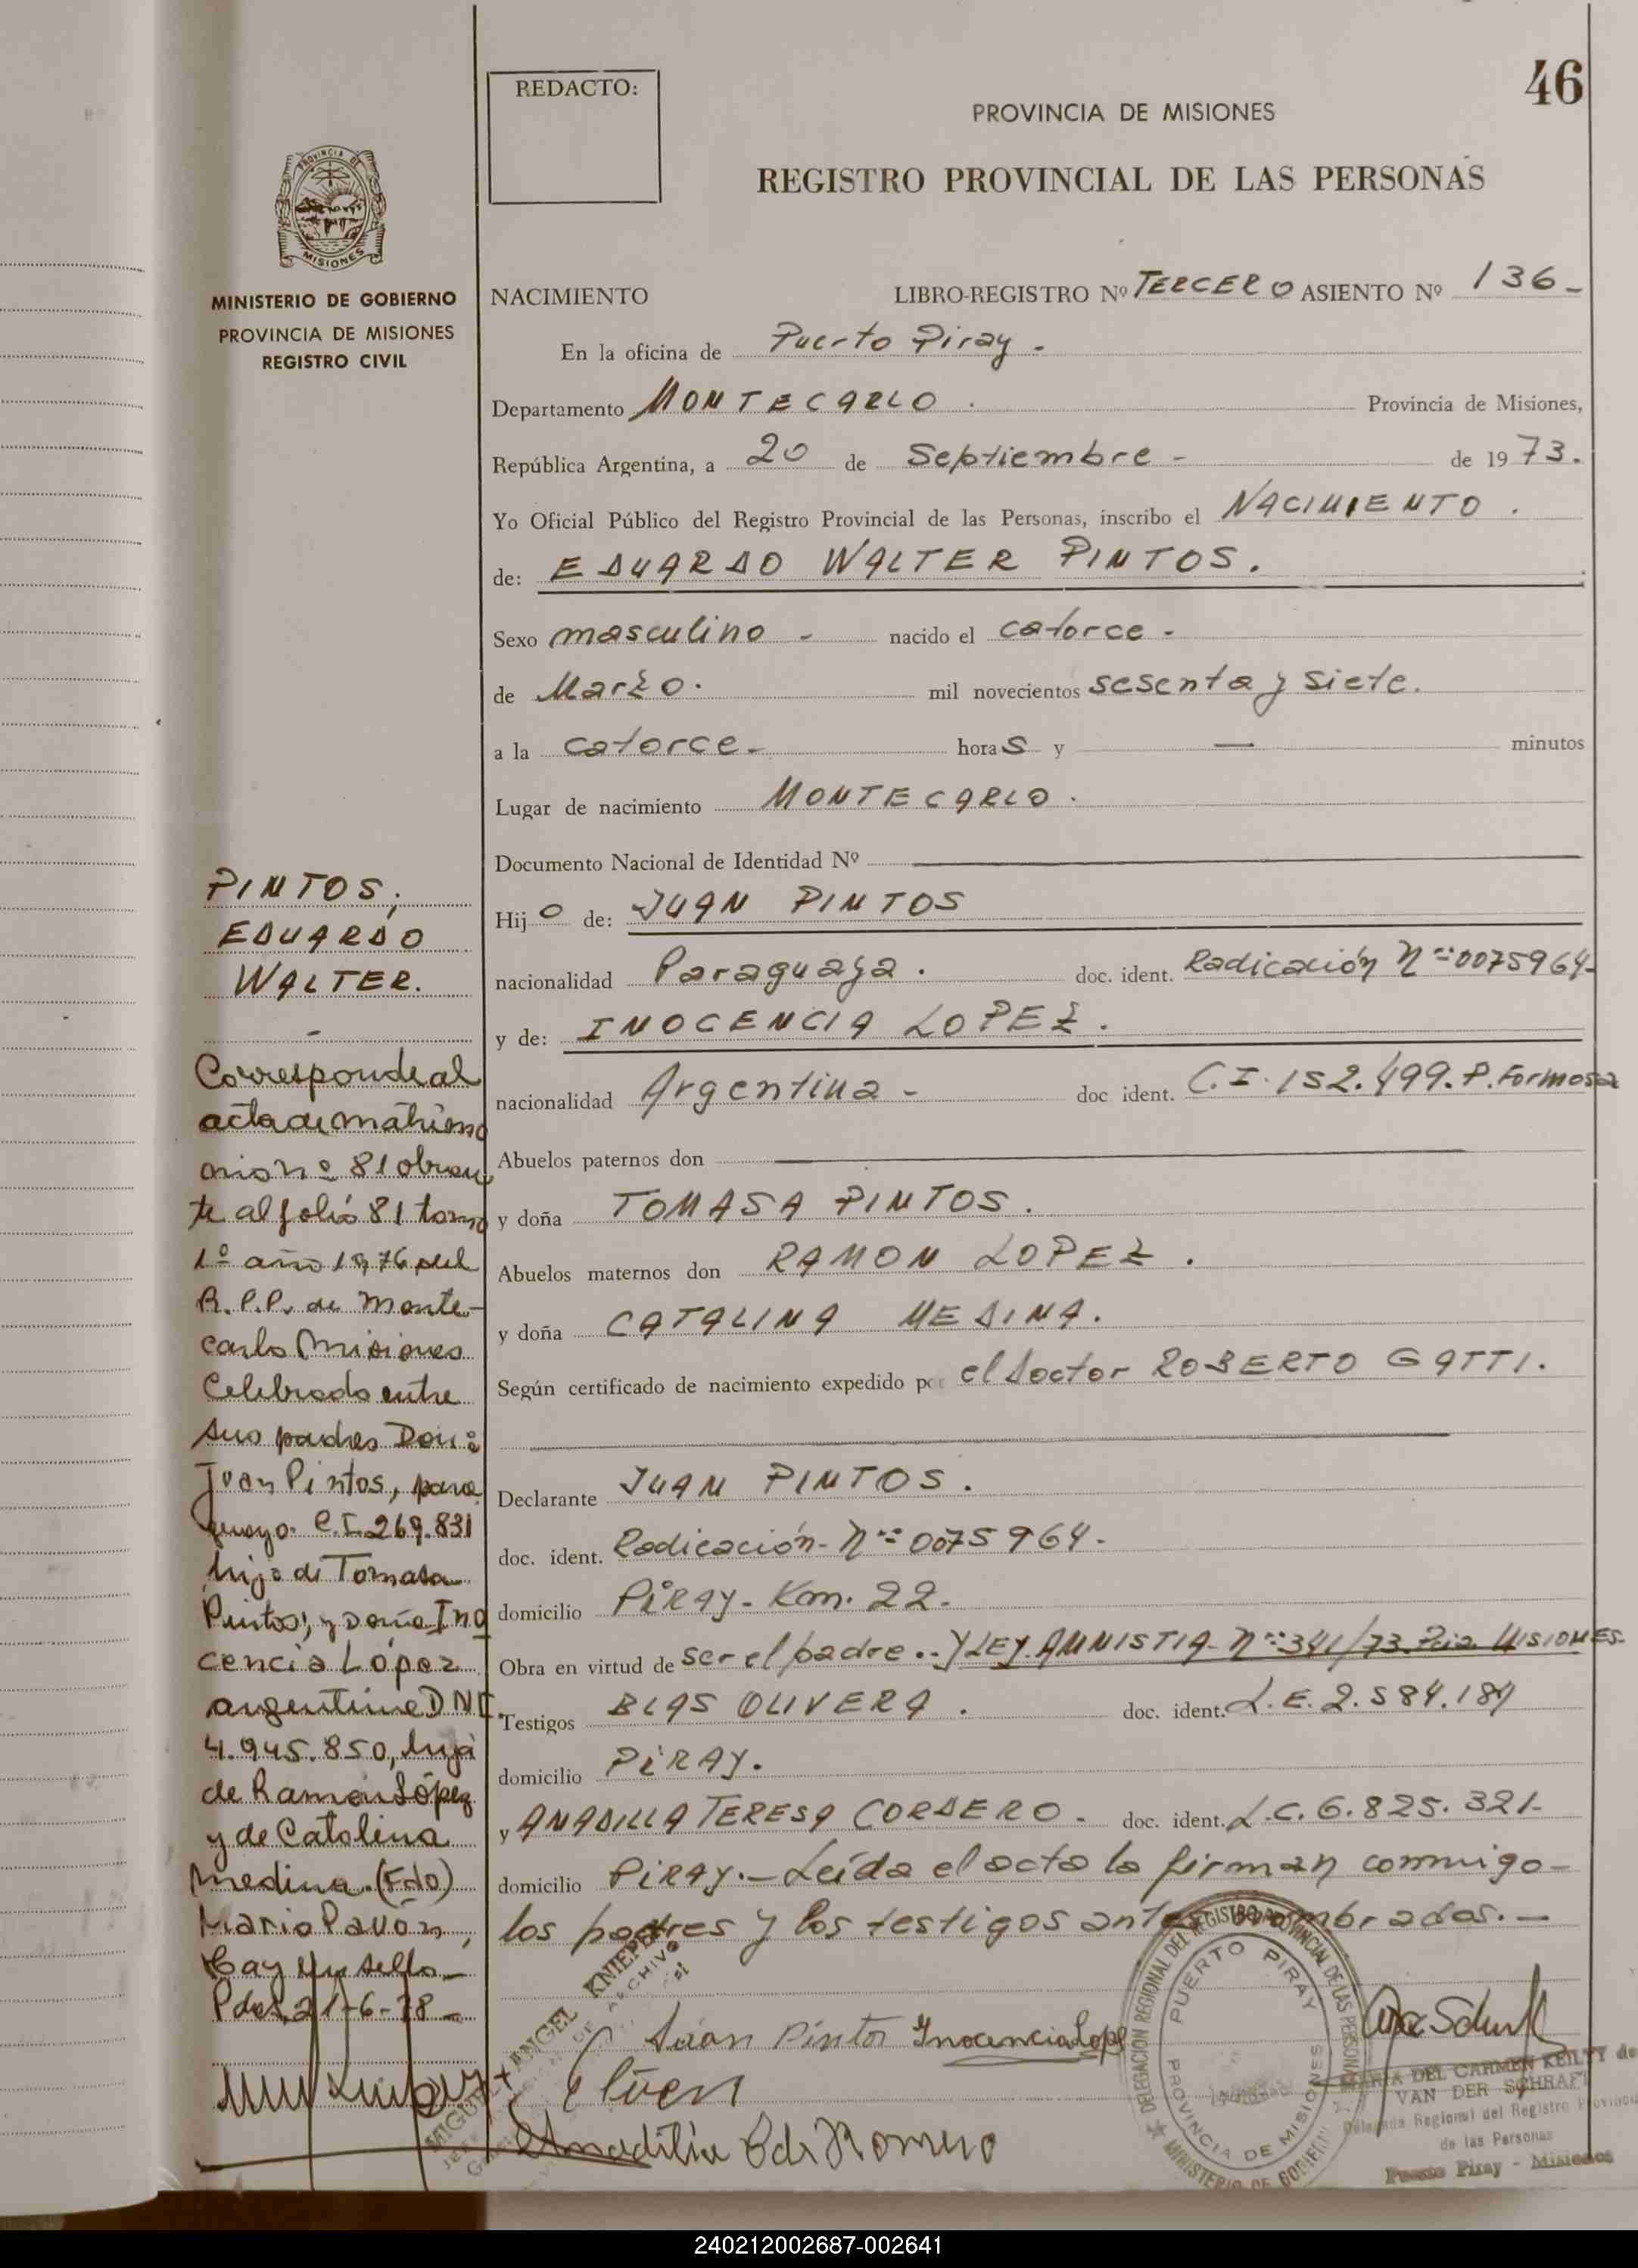 46
REDACTO:
PROVINCIA DE MISIONES
REGISTRO PROVINCIAL DE LAS PERSONAS
PROVINCIA DE
MISIONES
MINISTERIO DE GOBIERNO
PROVINCIA DE MISIONES
REGISTRO CIVIL
NACIMIENTO LIBRO-REGISTRO Nº TERCERO ASIENTO Nº 136-
En la oficina de Puerto Piray -
Departamento MONTECARLO. Provincia de Misiones,
República Argentina, a 20 de Septiembre - de 1973.
Yo Oficial Público del Registro Provincial de las Personas, inscribo el NACIMIENTO.
de: EDUARDO WALTER PINTOS.
Sexo masculino - nacido el catorce -
de Marzo. mil novecientos sesenta y siete.
a la catorce - horas y — minutos
Lugar de nacimiento MONTECARLO.
Documento Nacional de Identidad Nº
Hijo de: JUAN PINTOS
nacionalidad Paraguaya. doc. ident. Radicación Nº 0075964-
y de: INOCENCIA LOPEZ.
nacionalidad Argentina - doc ident. C.I. 152.499. P. Formosa
Abuelos paternos don
y doña TOMASA PINTOS.
Abuelos maternos don RAMON LOPEZ.
y doña CATALINA MEDINA.
Según certificado de nacimiento expedido por el doctor ROBERTO GATTI.
Declarante JUAN PINTOS.
doc. ident. Radicación- Nº 0075964-
domicilio PIRAY- Km. 22-
Obra en virtud de ser el padre.. Y LEY AMNISTIA- Nº 341/73 Pcia. MISIONES-
Testigos BLAS OLIVERA. doc. ident. L.E. 2.584.184
domicilio PIRAY.
y ANADILLA TERESA CORDERO- doc. ident. L.C. 6.825.321-
domicilio PIRAY.- Leída el acta la firman conmigo-
los padres y los testigos antes nombrados.-
PINTOS,
EDUARDO
WALTER.
-
Corresponde al
acta de matrimo
onio nº 81 obran
te al folio 81 tomo
1º año 1976 del
R.P.P. de Monte-
carlo Misiones
Celebrado entre
sus padres Don:
Juan Pintos, para
guayo. C.I. 269.831
hijo de Tomasa
Pintos; y Doña Ino
cencia López
argentina DNI.
4.945.850, hija
de Ramón López
y de Catalina
Medina. (Fdo)
Mario Pavón,
Hay un sello-
Pdas, 21-6-78-
Juan Pintos Inocencia Lopez
Anadilia C de Romero
MIGUEL ANGEL KNIEPER
ARCHIVO
DELEGACION REGIONAL DEL REGISTRO PROVINCIAL DE LAS PERSONAS
PUERTO PIRAY
PROVINCIA DE MISIONES
MINISTERIO DE GOBIERNO
MARIA DEL CARMEN KEILTY de
VAN DER SCHRAFT
Delegada Regional del Registro Provincial
de las Personas
Puerto Piray - Misiones
240212002687-002641